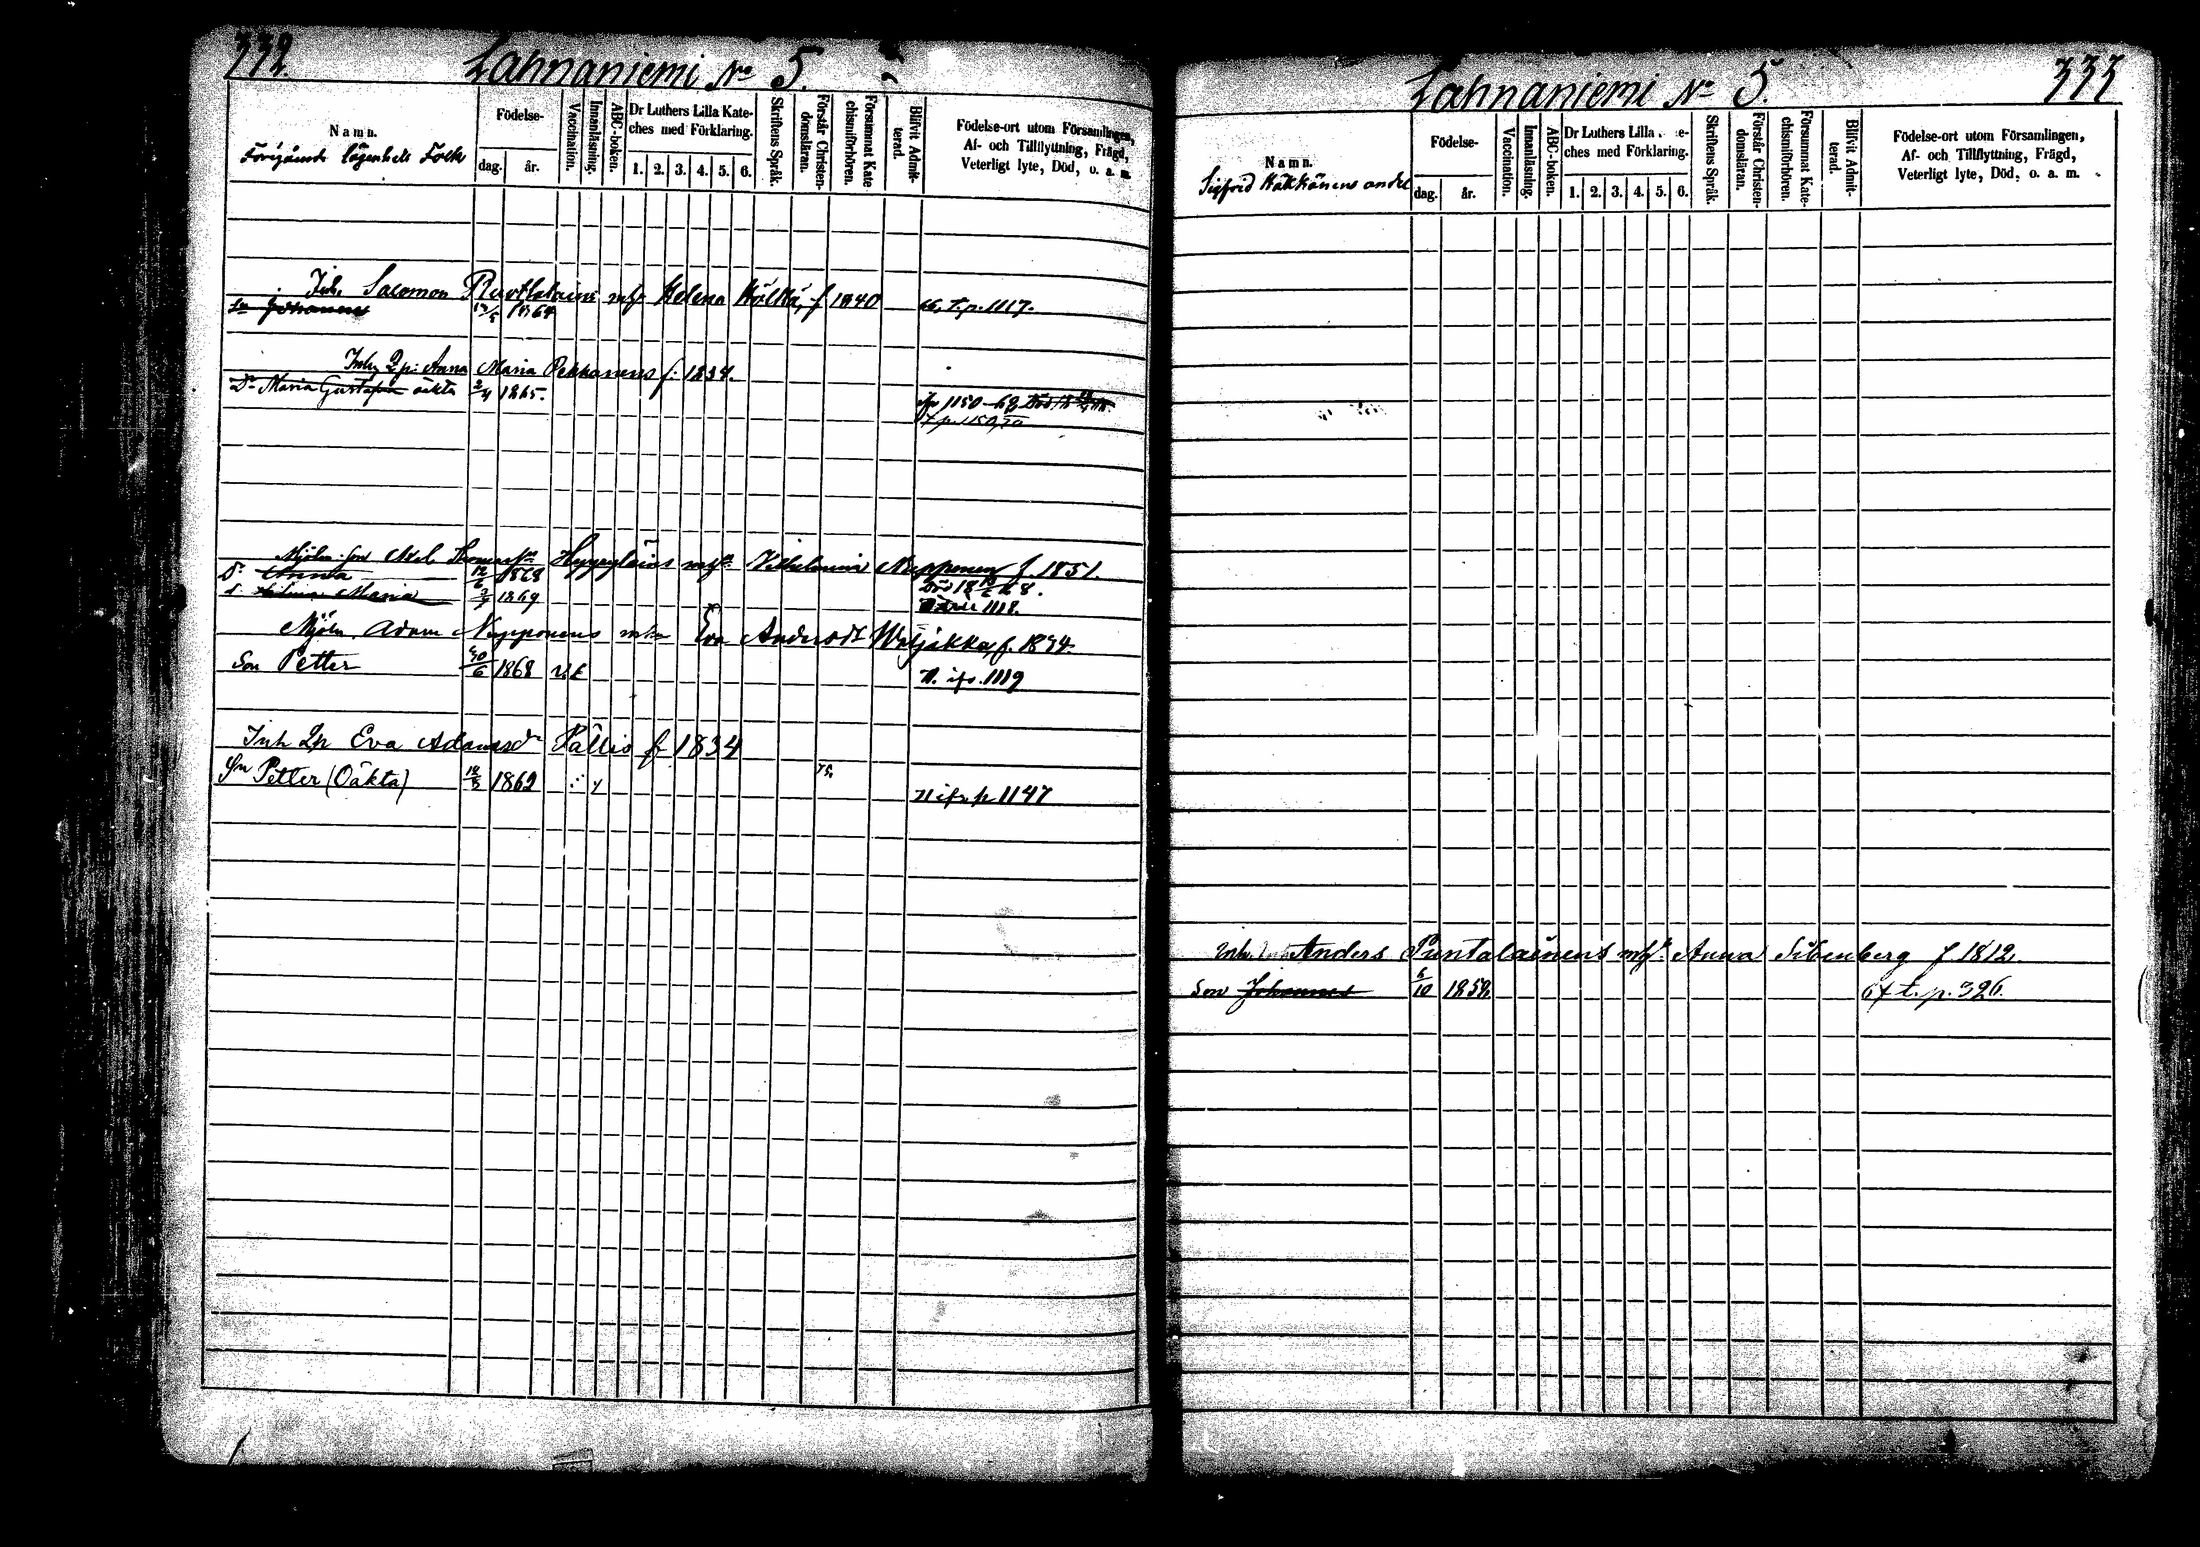 332.
Lahnaniemi No 5.
Namn.
Födelse-
dag. år.
Vaccination.
Innanläsning.
ABC-boken.
Dr Luthers Lilla Kate-
ches med Förklaring.
1. 2. 3. 4. 5. 6.
Skriftens Språk.
Förstår Christen-
domsläran.
Försummat Kate
chismiförhören.
Blifvit Admit-
terad.
Födelse-ort utom Församlingen,
Af- och Tillflyttning, Frägd,
Veterligt lyte, Död, o. a. m.
lägenhets Folk
Inh. Salomon mhu Helena Kölhä, f 1840
Sn Johannes 1864 66, T.p. 1117.
Inh. Qp: Anna Maria Pekkanens f: 1834.
Dr Maria Gustafva oäkta 2/4 1865. 1150
t.p. 1150, 70
Axel Hyyryläins Vilhelmina Nupponen f. 1851.
Dr Anna 12/6 1868 Död 18
d. Maria 1869 1118.
Mjöln. Adam Nupponens Eva Andersdr Waljakka, f. 1834.
Son Petter 30/6 1868 71. ifr. 1119
Inh Qp Eva Adamsdr Pällis f 1834
Sn Petter (Oäkta) 1862 75.
71 ifr p 1147
333
Lahnaniemi No 5.
Namn.
Sigfrid Kökkönens andel
Födelse-
dag. år.
Vaccination.
Innanläsning.
ABC-boken.
Dr Luthers Lilla e-
ches med Förklaring.
1. 2. 3. 4. 5. 6.
Skriftens Språk.
Förstår Christen-
domsläran.
Försummat Kate-
chismiförhören.
Blifvit Admit-
terad.
Födelse-ort utom Församlingen,
Af- och Tillflyttning, Frägd,
Veterligt lyte, Död, o. a. m.
Inh. Anders Puntalainens Anna f 1812.
Son Johannes 6/10 1852 64 t. p. 326.